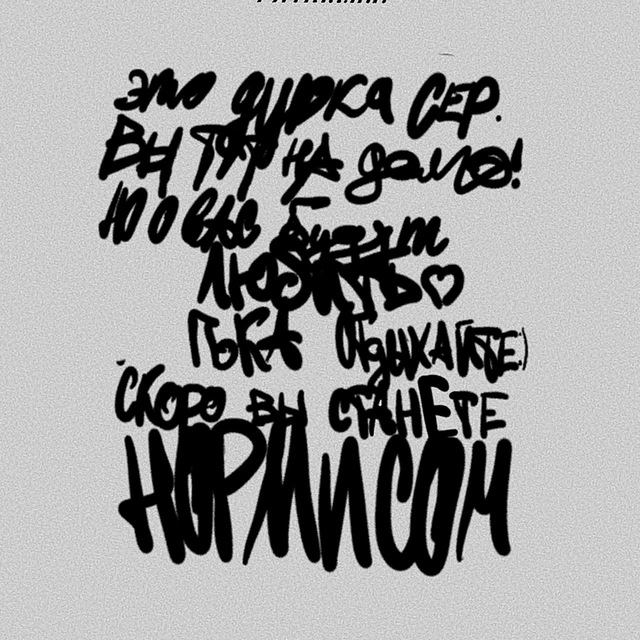 это дурка сер.
Вы тут на долго!
но о вас будут
любить♡
пока отдыхайте:)
скоро вы станете
нормисом